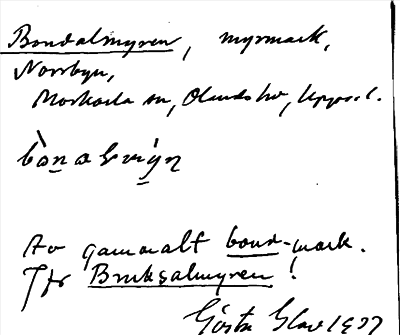 Bondalmyren, myrmark,
Norrbyn,
Morkarla sn, Olands hd, Uppsl.
Av gammalt bond-mark.
Jfr Bruksalmyren!
Gösta